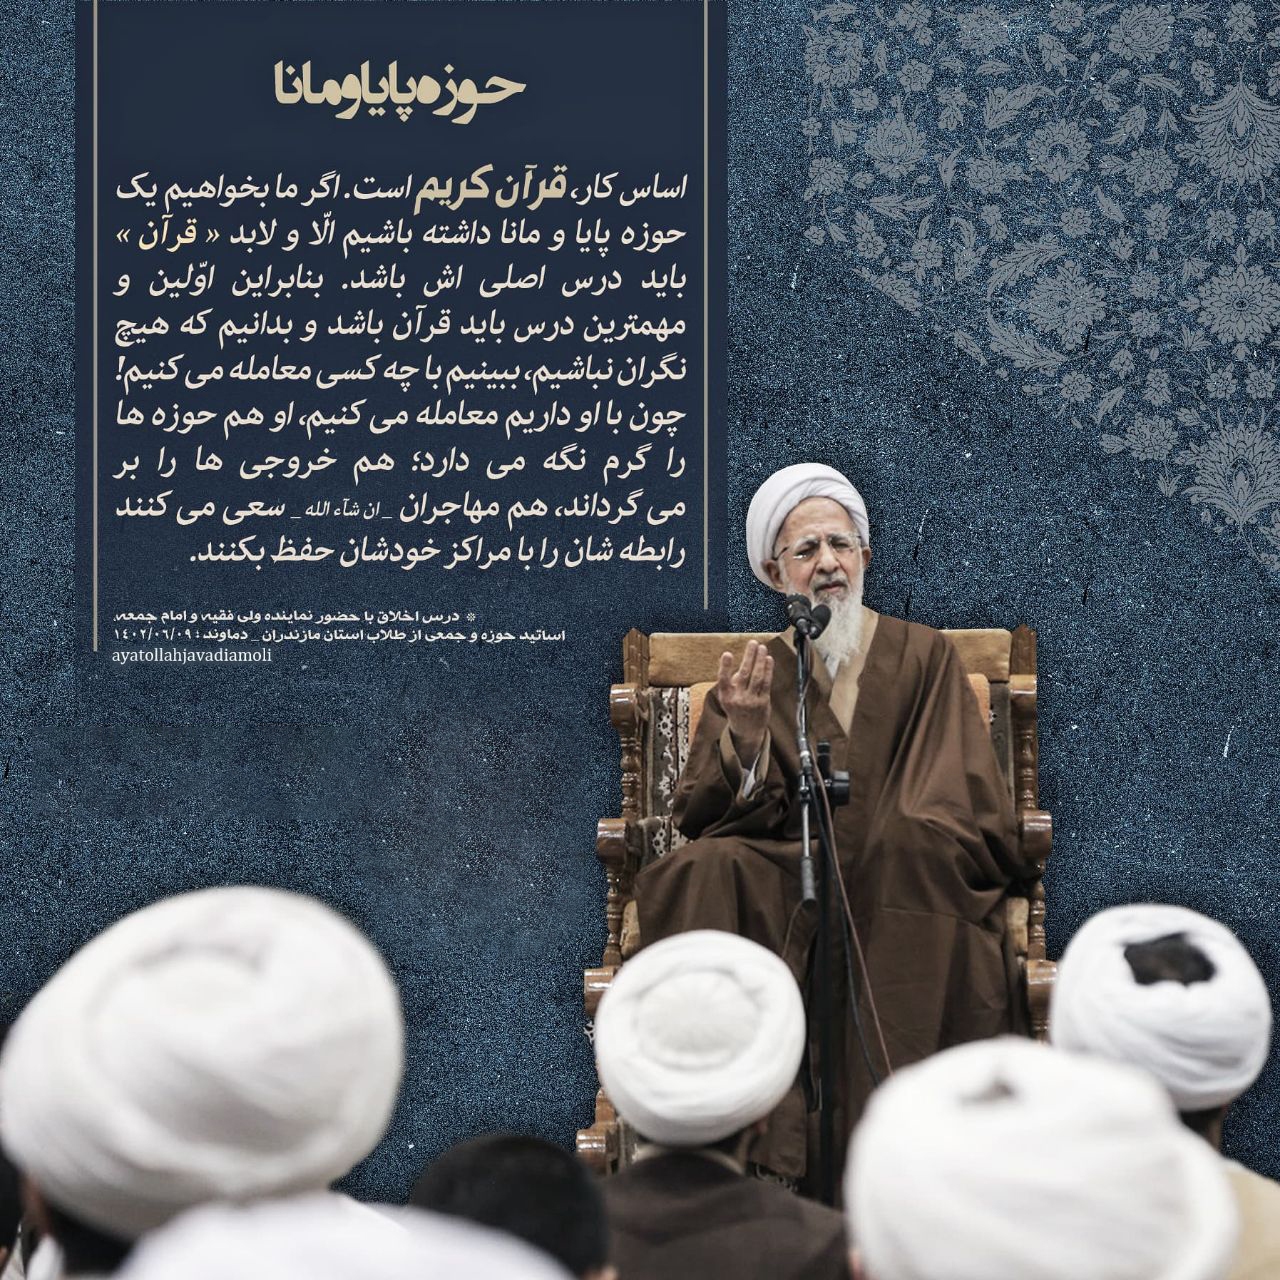 حوزه پایا و مانا
اساس کار، قرآن کریم است. اگر ما بخواهیم یک
حوزه پایا و مانا داشته باشیم الّا و لابد « قرآن »
باید درس اصلی اش باشد. بنابراین اوّلین و
مهمترین درس باید قرآن باشد و بدانیم که هیچ
نگران نباشیم، ببینیم با چه کسی معامله می کنیم!
چون با او داریم معامله می کنیم، او هم حوزه ها
را گرم نگه می دارد؛ هم خروجی ها را بر
می گرداند، هم مهاجران _ ان شآء الله _ سعی می کنند
رابطه شان را با مراکز خودشان حفظ بکنند.
※ درس اخلاق با حضور نماینده ولی فقیه و امام جمعه،
اساتید حوزه و جمعی از طلاب استان مازندران _ دماوند ؛ ۱۴۰۲/۰۶/۰۹
ayatollahjavadiamoli